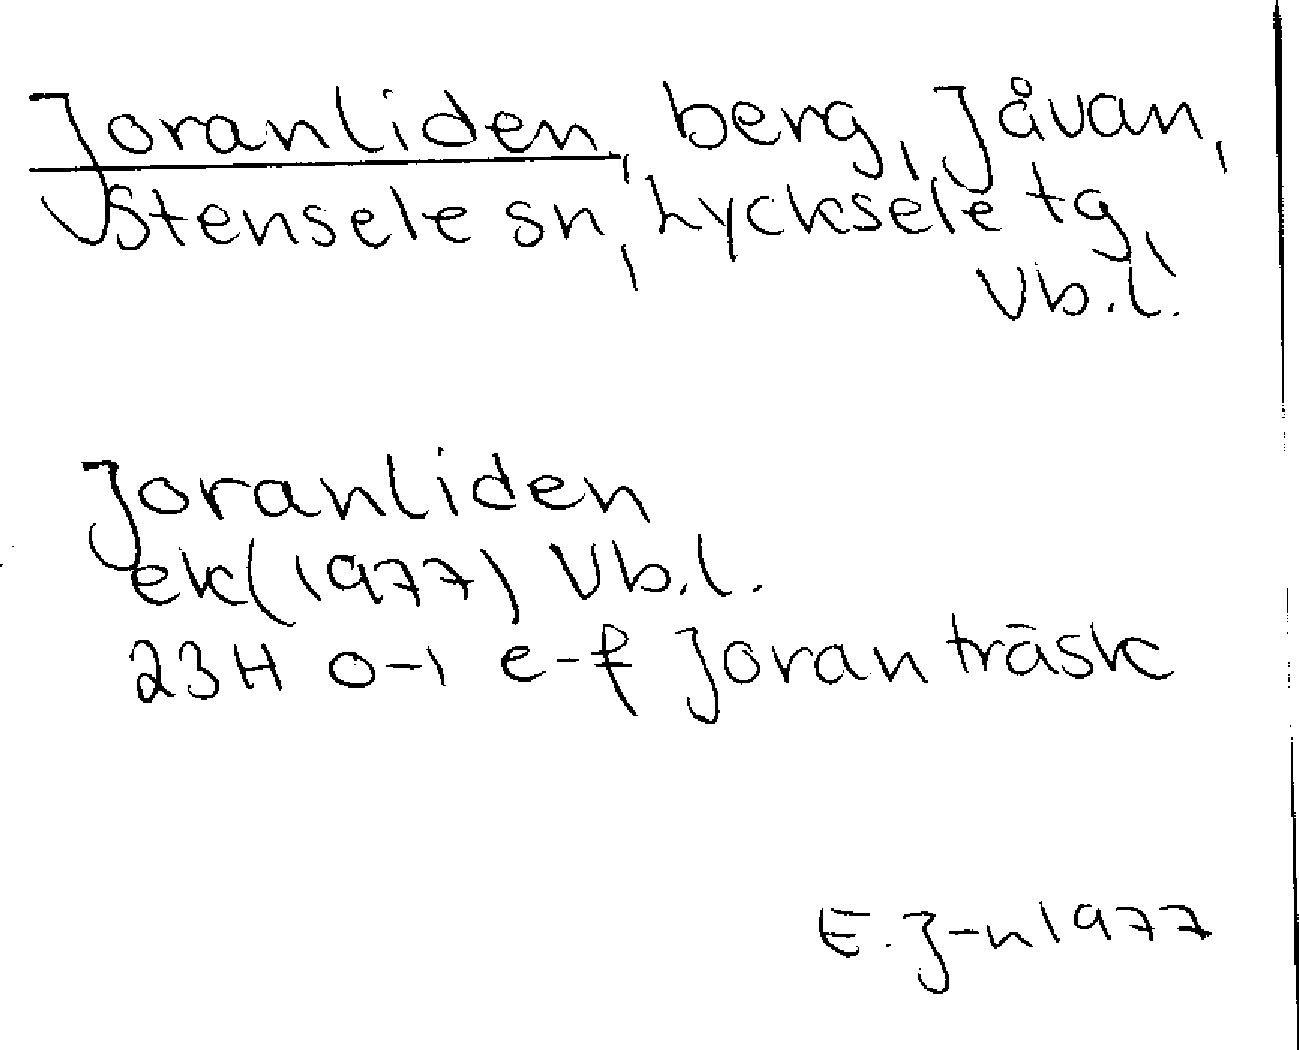 Joranliden, berg, Jåvan,
Stensele sn, Lycksele tg,
Vb.l.
Joranliden
ek(1977) Vb.l.
23H 0-1 e-f Joranträsk
E.J-n 1977